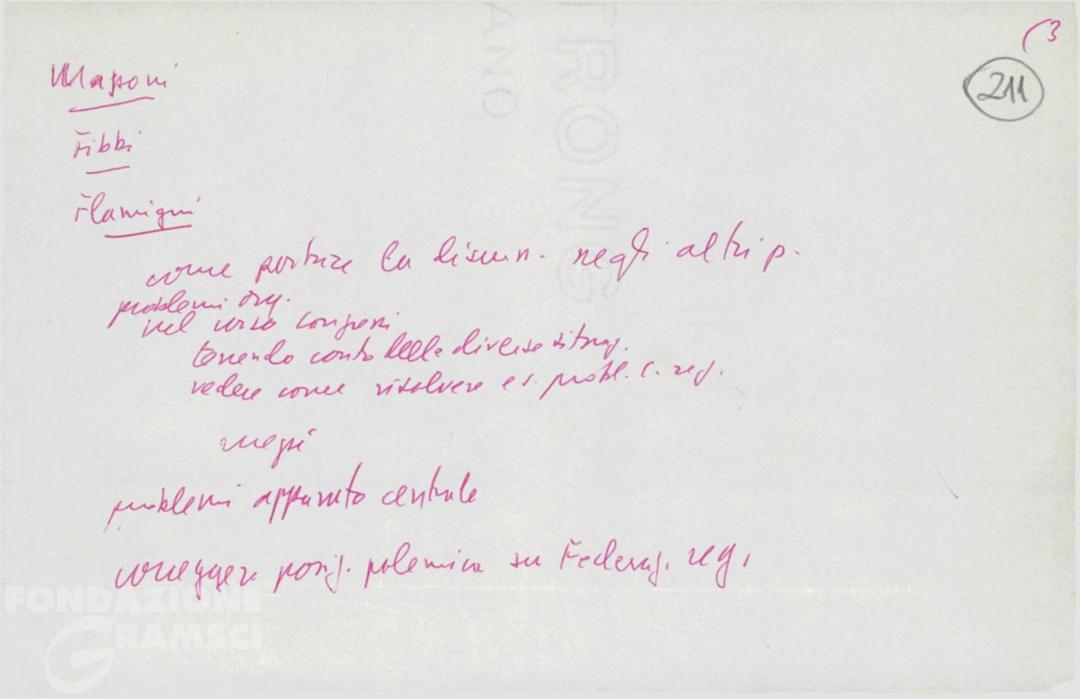 (3
211
Masoni
Fibbi
Flamigni
come portare la discussn. negli altri p.
problemi org.
nel corso congressi
tenendo conto delle diverse situaz.
vedere come risolvere es. probl. c. reg.
mezzi
problemi apparato centrale
correggere posiz. polemica su Federaz. reg.
TRONS
ANO
FONDAZIONE
GRAMSCI